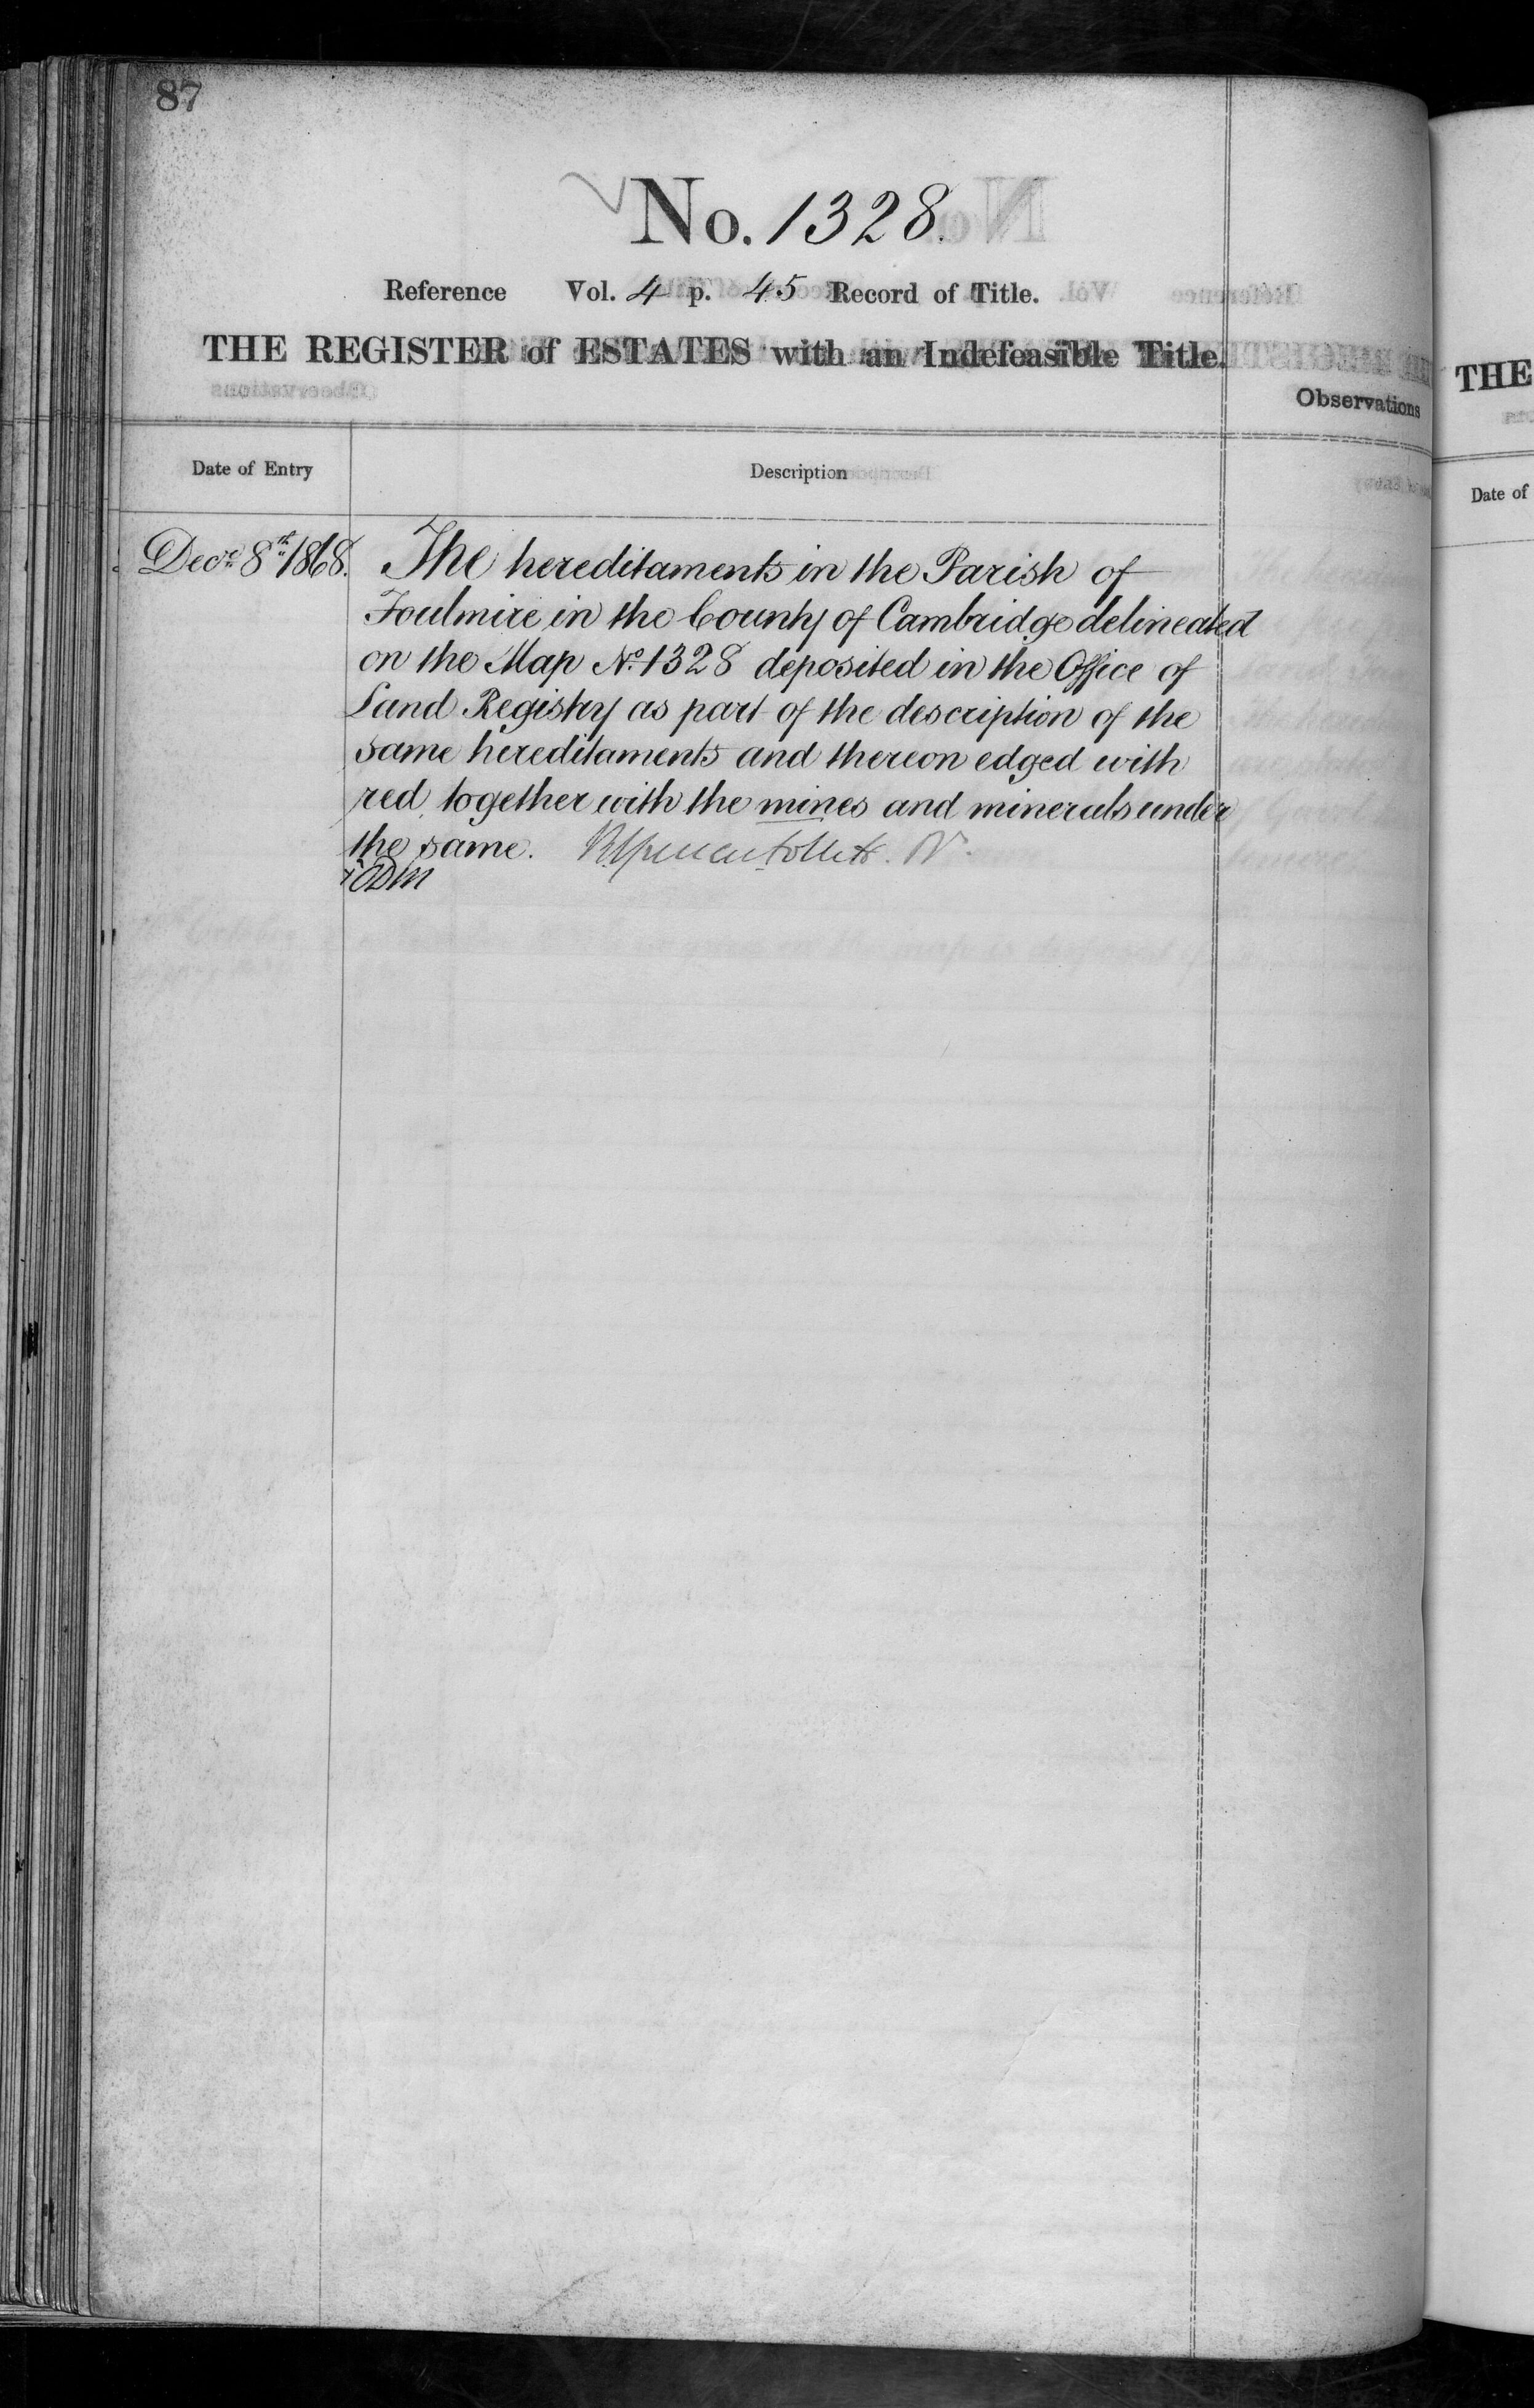 87
No. 1328.
Reference Vol. 4 p. 45 Record of Title.
THE REGISTER of ESTATES with an Indefeasible Title.
Observations
Date of Entry
Description
Decr. 8th 1868.
The hereditaments in the Parish of
Foulmire in the County of Cambridge delineated
on the Map No. 1328 deposited in the Office of
Land Registry as part of the description of the
same hereditaments and thereon edged with
red, together with the mines and minerals under
the same.
THE
Date of